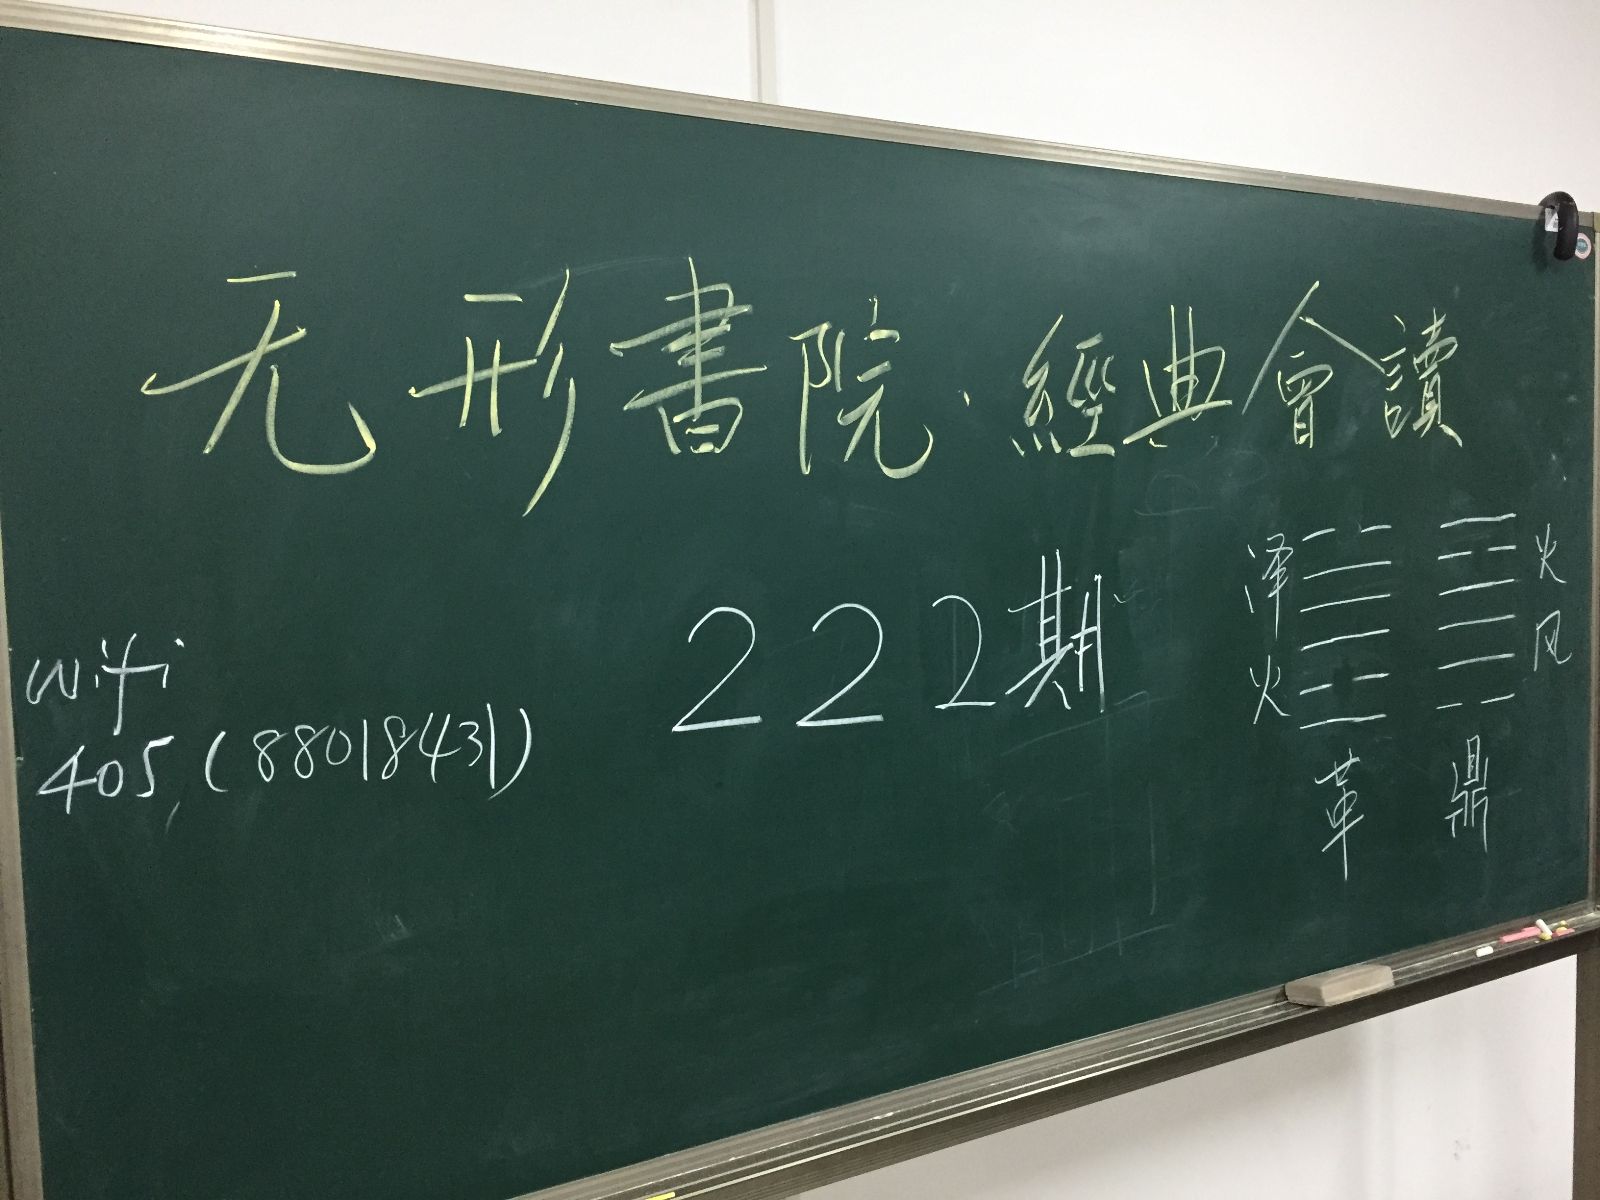 无形書院·經典會讀
222期
wifi
405,(88018431)
泽火
火风
革
鼎